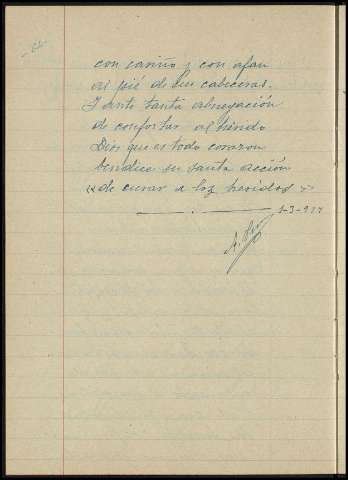 con cariño y con afan
al pié de sus cabeceras.
I ante tanta abnegación
de confortar al herido
Dios que es todo corazon
bendice su santa acción
"de curar a los heridos"
1-3-937
A.